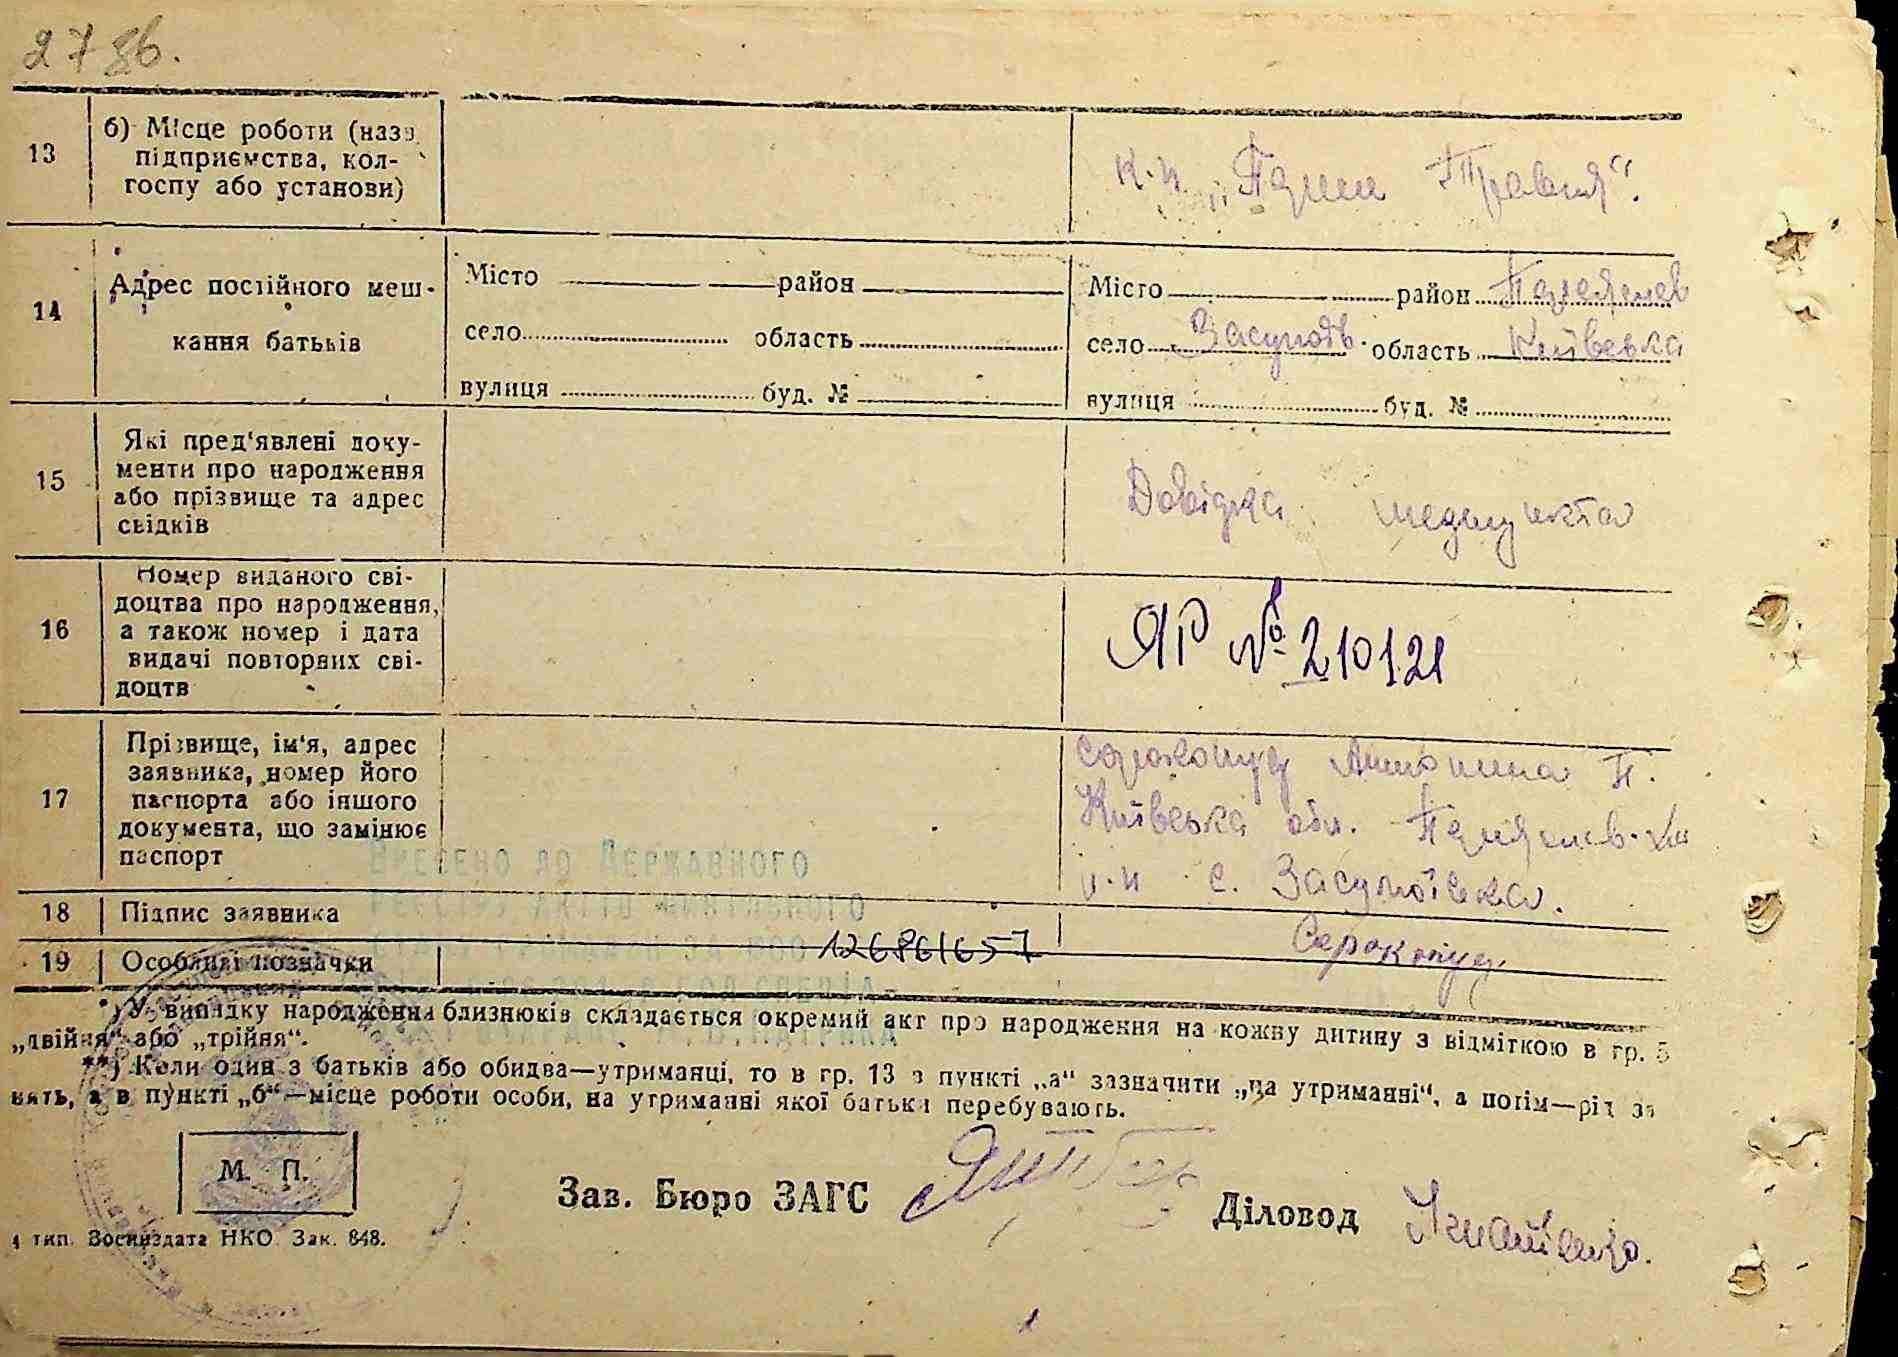 278б.
13
б) Місце роботи (назв.
підприємства, кол-
госпу або установи)
к-п „Перше Травня“.
14
Адрес постійного меш-
кання батьків
Місто район
село область
вулиця буд. №
Місто район
село Засупоїв область Київська
вулиця буд. №
15
Які пред'явлені доку-
менти про народження
або прізвище та адрес
свідків
Довідка медпункта
16
Номер виданого сві-
доцтва про народження,
а також номер і дата
видачі повторних сві-
доцтв
ЯР № 210121
17
Прізвище, ім'я, адрес
заявника, номер його
паспорта або іншого
документа, що замінює
паспорт
Сорокопуд Антонина П.
Київська обл.
с. Засупоївка.
Внесено до Державного
реєстру актів цивільного
126861657
18 Підпис заявника
Сорокопуд
19 Особливі позначки
*) У випадку народження близнюків складається окремий акт про народження на кожну дитину з відміткою в гр. 5
„двійня“ або „трійня“.
**) Коли один з батьків або обидва—утриманці, то в гр. 13 в пункті „а“ зазначити „на утриманні“, а потім—рід за
нять, а в пункті „б“—місце роботи особи, на утриманні якої батьки перебувають.
М. П.
Зав. Бюро ЗАГС
Діловод Ігнатенко.
4 тип. Воениздата НКО. Зак. 848.